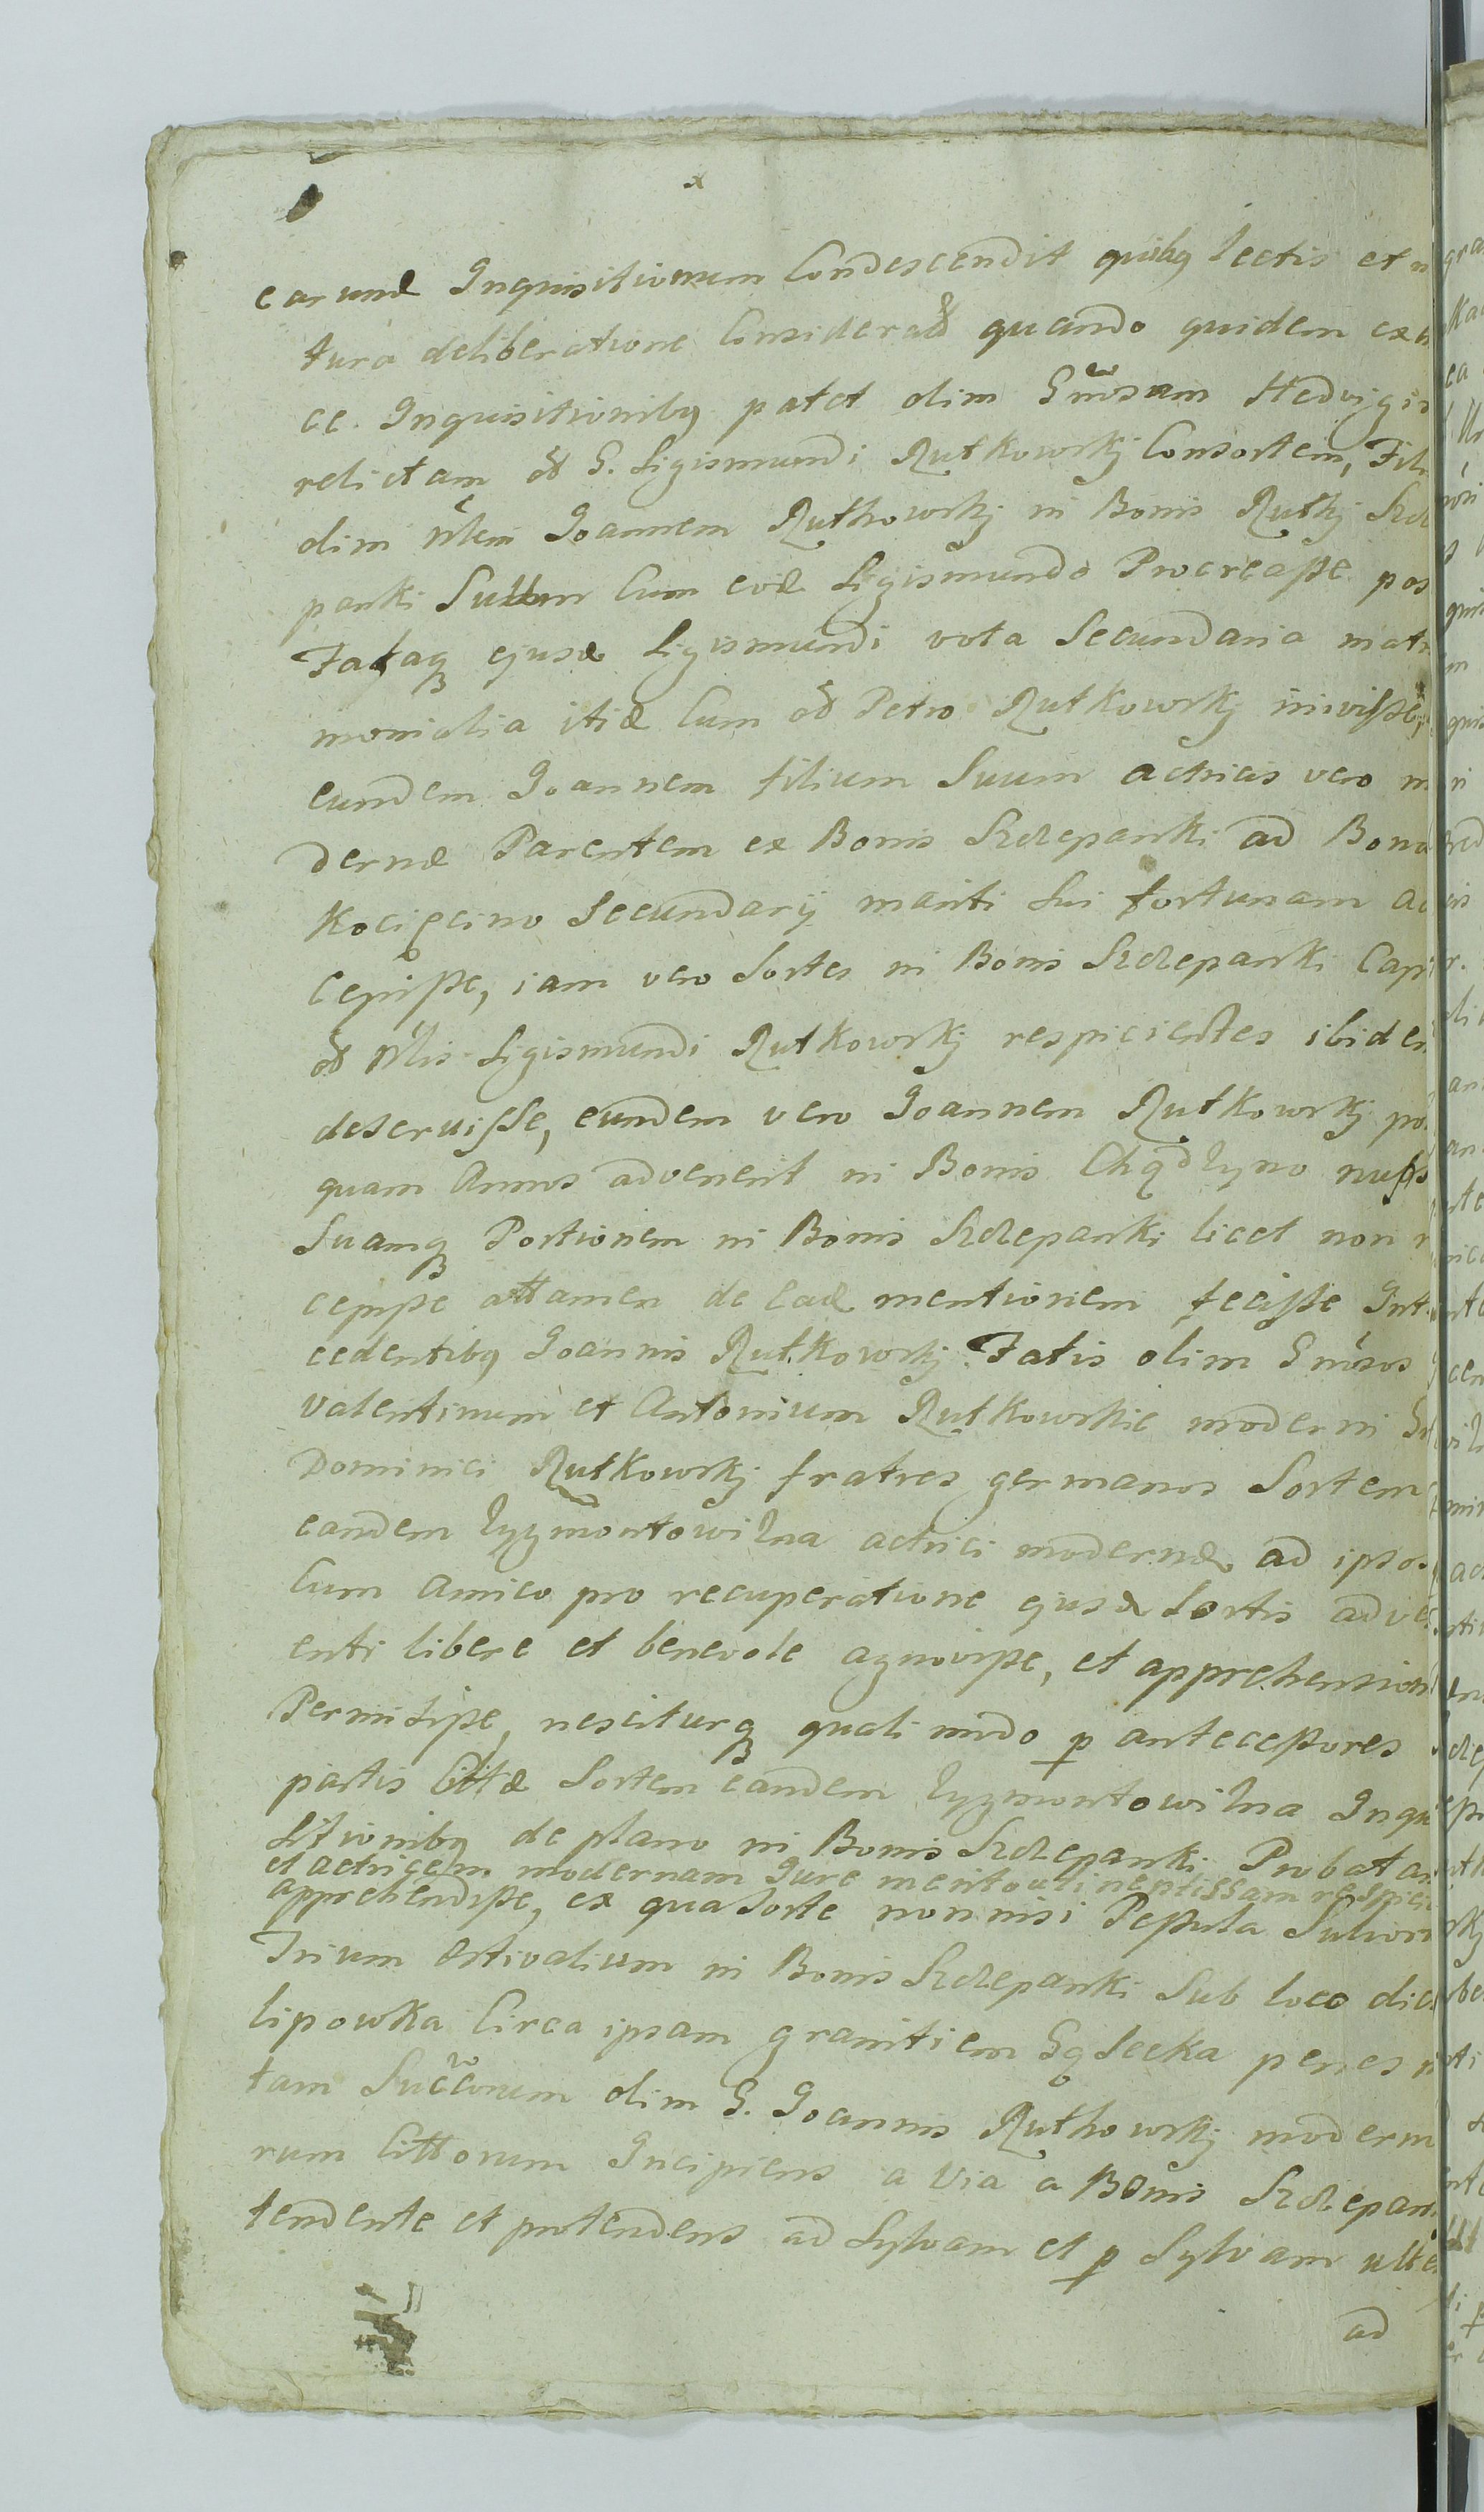 earund Inquisitionum Condescendit quibus lectis et
tura deliberatione Considerad quando quidem ex
ce. Inquisitionibus patet olim Gnosam Hedvigi
relictam G. Sigismundi Rutkowskj Consortem, Fili
olim Joannem Rutkowskj in Bonis Rutkj Szcze
panki Suum Cum eod Sigismundo Procreasse pos
Fataq ejusd Sigismundi vota Secundaria matri
monialia itid Cum Petro Rutkowskj inivisse,
eundem Joannem filium Suum actricis vero m
dernæ Parentem ex Bonis Szczepanki ad Bona
Kocięcino Secundarij mariti Sui fortunam ac
cepisse, iam vero Sortes in Bonis Szczepanki Capi
Sigismundi Rutkowskj respicientes ibidem
deseruisse, eundem vero Joannem Rutkowskj pos
quam Annos advenerit in Bonis Chądzyno nups
Suamq Portionem in Bonis Szczepanki licet non r
cepisse attamen de ead mentionem fecisse Inter
cedentibus Joannis Rutkowskj Fatis olim Gnosos
Valentinum et Antonium Rutkowskie moderni
Dominici Rutkowskj fratres germanos Sortem
eandem Zygmontowizna actrici modernæ ad ipsos
Cum Amico pro recuperatione ejusd Sortis adve
enti libere et benevole agnovisse, et apprehension
Permisisse, nesciturq quali modo p antecessores
partis Cittæ Sortem eandem Zygmontowizna Inqui
Sitionibus de plano in Bonis Szczepanki Probatam
et actricem modernam Jure merito respici
apprehendisse, ex qua Sorte nonnisi Pessula Sulcorum
Trium Estivalium in Bonis Szczepanki Sub loco dict
lipowka Circa ipsam granitiem Gąsecka penes
tam Succorum olim G. Joannis Rutkowskj moderno
rum Cittorum Incipiens a Via a Bonis Szczepan
tendente et protendens ad Sylvam et p Sylvam ulte
ad